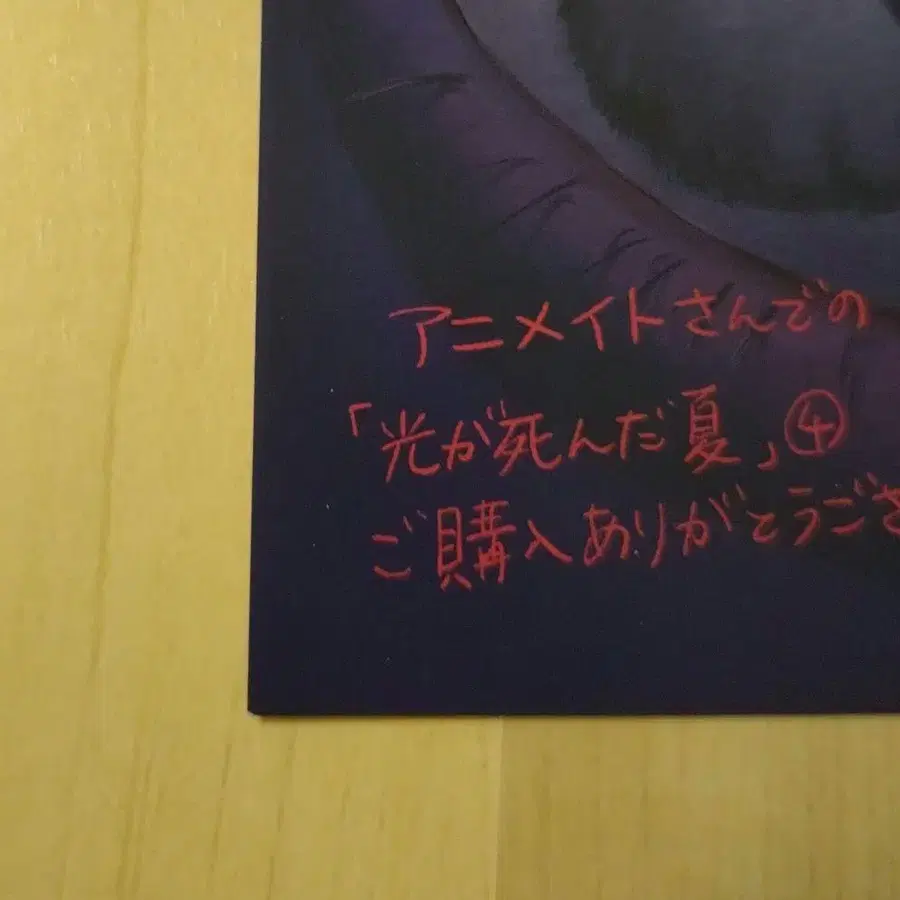 アニメイトさんでの
「光が死んだ夏」④
ご購入ありがとうござ